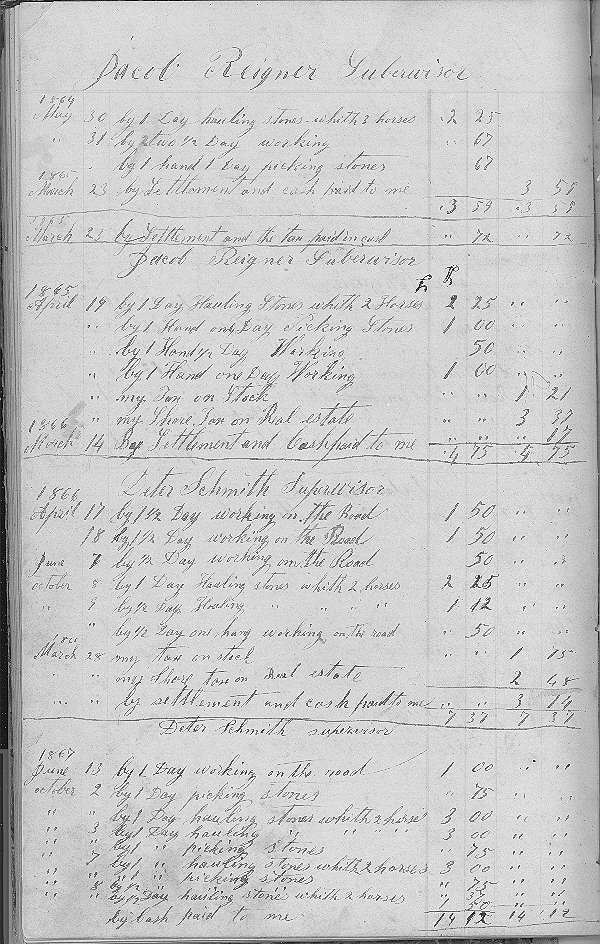 Jacob Reigner Suberwisor
1864
May 30 by 1 Day hauling stones whith 3 horses 2 25
" 31 by two 1/2 Day working " 67
by 1 hand 1 Day picking stones 67
1865
March 23 by Settlement and cash paid to me 3 59
3 59 3 59
1865
March 23 by Settlement and the tax paid in cash " 72 " 72
Jacob Reigner Suberwisor
1865
April 19 by 1 Day Hauling Stones whith 2 Horses 2 25 " "
" by 1 Hand one Day Picking Stones 1 00 " "
" by 1 Hand 1/2 Day Working 50 " "
" by 1 Hand one Day Working 1 00 " "
" my Tax on Stock 1 21
" my Shore Tax on Real estate " " 3 37
1866
March 14 By Settlement and Cash paid to me " " " 17
4 75 4 75
Peter Schmith Supervisor
1866
April 17 by 1 1/2 Day working on the Road 1 50 " "
18 by 1 1/2 Day working on the Road 1 50 " "
June 7 by 1/2 Day working on the Road 50 " "
october 8 by 1 Day Hauling stones whith 2 horses 2 25 " "
" 9 by 1/2 Day Hawling " " " " 1 12 " "
" " by 1/2 Day one hang working on the road " 50 " "
March 28 my tax on stock " " 1 15
" " my Shore tax on Real estate 2 48
" " by settlement and cash paid to me " " 3 14
7 37 7 37
Peter Schmith supervisor
1867
June 13 by 1 Day working on the road 1 00 " "
october 2 by 1 Day picking stones " 75 " "
" " by 1 Day hauling stones whith 2 horses 3 00 " "
" 3 by 1 Day hauling " " " " 3 00 " "
" " by 1 " picking stones " 75 " "
" 7 by 1 " hawling stones whith 2 horses 3 00 " "
" " " 1 " picking stones " 75 " "
" 8 by 1/2 " "
" " by 1/2 Day hauling stones whith 2 horses 1 50 " "
by Cash paid to me 14 12 14 12